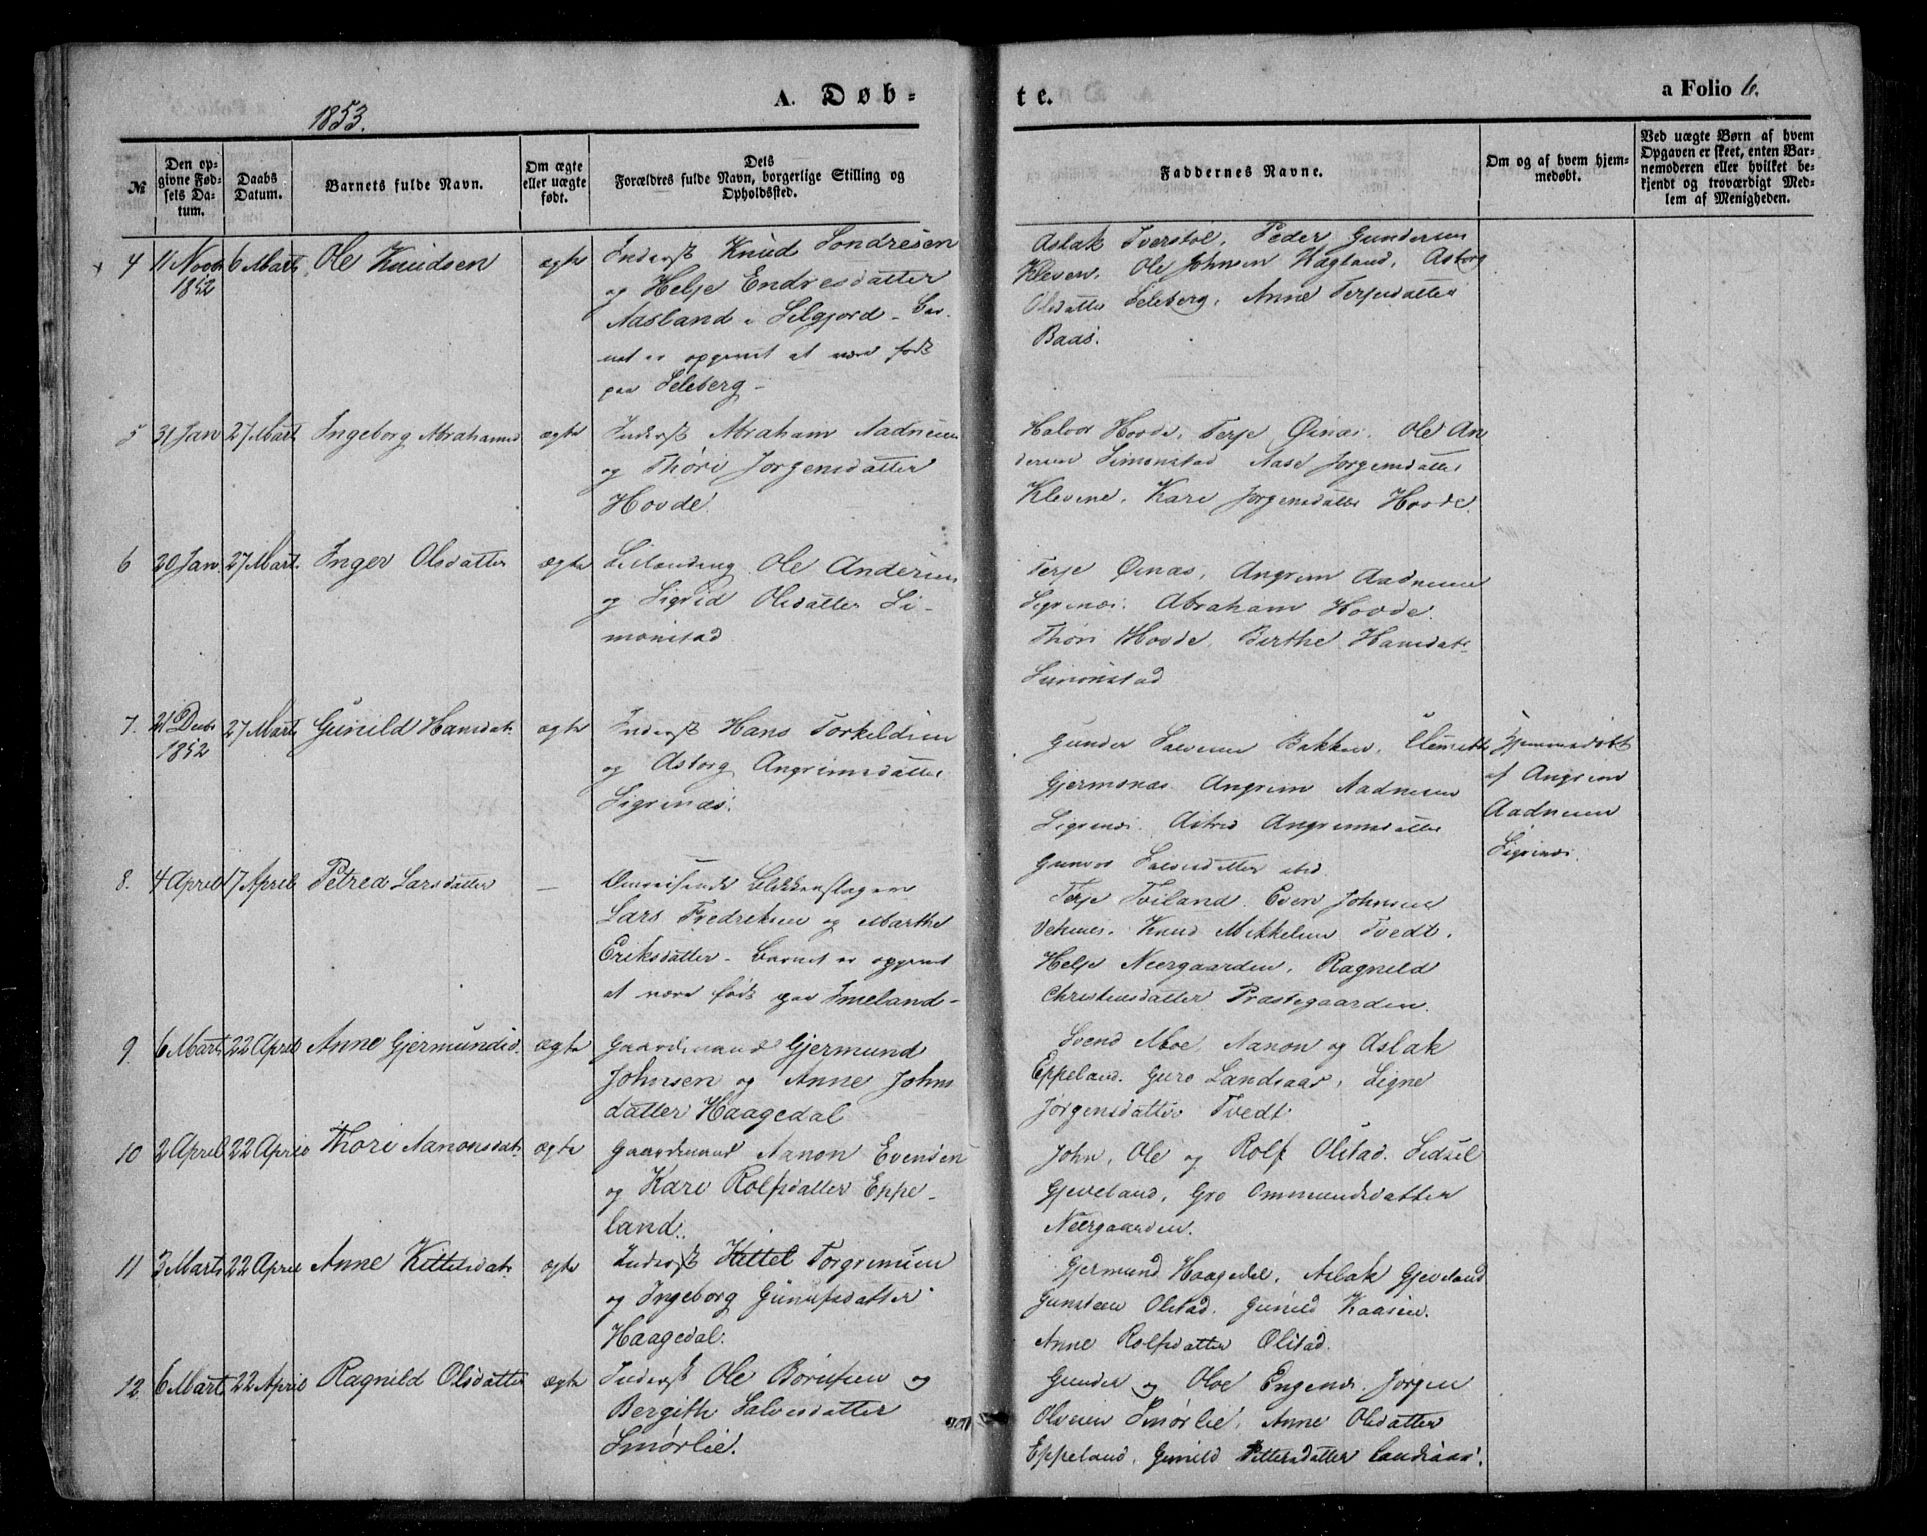 1853.
A. Døb-
te.
a Folio 6.
№
Den op-
givne Fød-
sels Da-
tum.
Daabs
Datum.
Barnets fulde Navn.
Om ægte
eller uægte
født.
Dets
Forældres fulde Navn, borgerlige Stilling og
Opholdssted.
Faddernes Navne.
Om og af hvem hjem-
medøbt.
Ved uægte Børn af hvem
Opgaven er skeet, enten Bar-
nemoderen eller hvilket be-
kjendt og troværdigt Med-
lem af Menigheden.
4
11 Novb
1852
6 Marts
Ole Knudsen
ægte
Inderst Knud Sondresen
og Helje Endresdatter
Aasland i Silgjord - Bar-
net er opgivet at være født
paa Seleberg -
Aslak Tverstøl, Peder Gundersen
Kleven, Ole Johnsen Hagland, Asborg
Olsdatter Seleberg, Anne Terjesdatter
Baas.
5
31 Jan
27 Mart
Ingeborg Abrahamsd
ægte
Inderst Abraham Aadnesen
og Thøri Jørgensdatter
Hovde.
Halvor Hovde, Terje Øinæs, Ole An
dersen Simonstad Aase Jørgensdatter
Klevene, Kari Jørgensdatter Hovde.
6
20 Jan.
27 Mart.
Inger Olsdatter
ægte
Leilænding Ole Andersen
og Sigrid Olsdatter Si-
monstad
Terje Øinæs, Angrim Aadnesen
Sigrinæs. Abraham Hovde
Thøri Hovde, Birthe Hansdat-
Simonstad
7.
21 Decbr
1852
27 Marts
Gunild Hansdat.
ægte
Inderst Hans Torkeldsen
og Asborg Angrimsdatter
Sigrinæs.
Gunder Salvesen Bakken, Clemet
Gjermonæs Angrim Aadnesen
Sigrinæs. Astrid Angrimsdatter
Gunvor Salvesdatter ibid
Hjemmedøbt
af Angrim
Aadnesen
Sigrinæs.
8.
4 April
17 April
Petrea Larsdatter
—
Omreisende Blikkenslager
Lars Fredriksen og Marthe
Eriksdatter - Barnet er opgivet
at være født paa Imeland -
Terje Tviland, Even Johnsen
Vehnes. Knud Mikkelsen Tvedt.
Helje Neergaarden, Ragnild
Christensdatter Præstegaarden.
9
6 Marts
22 April
Anne Gjermundsd.
ægte
Gaardmand Gjermund
Johnsen og Anne Johns
datter Haagedal
Svend Moe, Aanon og Aslak
Eppeland. Guro Landsaas, Signe
Jørgensdatter Tvedt.
10
2 April
22 April
Thori Aanonsdat.
ægte
Gaardmand Aanon Evensen
og Kari Rolfsdatter Eppe-
land.
John, Ole og Rolf Ølstad. Sidsel
Gjeveland, Gro Ommundsdatter
Neergaarden.
11
3 Marts
22 April
Anne Kittelsdat.
ægte
Inderst Kittel Torgrimsen
og Ingeborg Gunulfsdatter
Haagedal.
Gjermund Haagedal, Aslak Gjeveland
Gunsteen Ølstad. Gunild Kaasen.
Anne Rolfsdatter Ølstad.
12
6 Mart
22 April
Ragnild Olsdatter
ægte
Inderst Ole Børufsen og
Bergith Salvesdatter
Smørlie.
Gunder og Olve Engenæs. Jørgen
Olvesen Smørlie, Anne Olsdatter
Eppeland, Gunild Pettersdatter Landsaas.